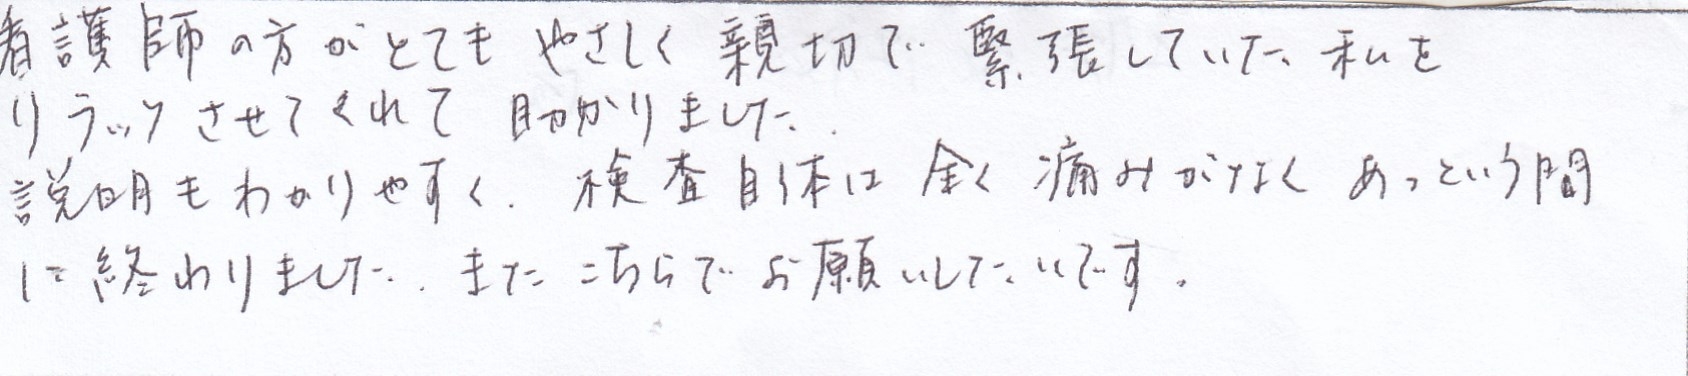 看護師の方がとてもやさしく親切で緊張していた私を
リラックスさせてくれて助かりました.
説明もわかりやすく. 検査自体は全く痛みがなくあっという間
に終わりました. またこちらでお願いしたいです.